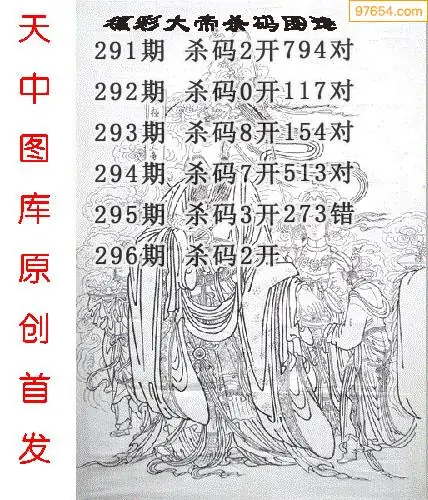 97654.com
福彩大帝杀码图谜
291期 杀码2开794对
292期 杀码0开117对
293期 杀码8开154对
294期 杀码7开513对
295期 杀码3开273错
296期 杀码2开
天中图库原创首发